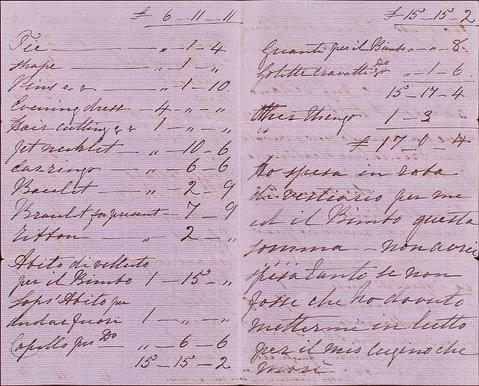 £ 6 – 11 – 11
Tie — „ – 1 – 4
shape — „ – 1 – „
Pins &c — „ – 1 – 10.
Evening dress – 4 – „ – „
Hair cutting &c 1 – „ – „
Jet necklet – „ – 10 – 6
earrings – „ – 6 – 6
Bracelet – „ – 2 – 9
Bracelet for present – 7 – 9
Ribbon – „ – 2 – „
Abito di velluto
per il Bimbo 1 – 15 – „
Sopr'Abito per
andar fuori 1 – „ – „
Capello per Do „ – 6 – 6
15 – 15 – 2
£ 15 – 15 – 2
Guanti per il Bimbo „ – „ – 8
Golette cravatte &c „ – 1 – 6.
15 – 17 – 4
Other things 1 – 3 „
£ 17 – 0 – 4
Ho spesa in roba
di vestiario per me
ed il Bimbo questa
somma – non avrei
spesa tanto se non
fosse che ho dovuto
mettermi in lutto
per il mio cugino che
morì.